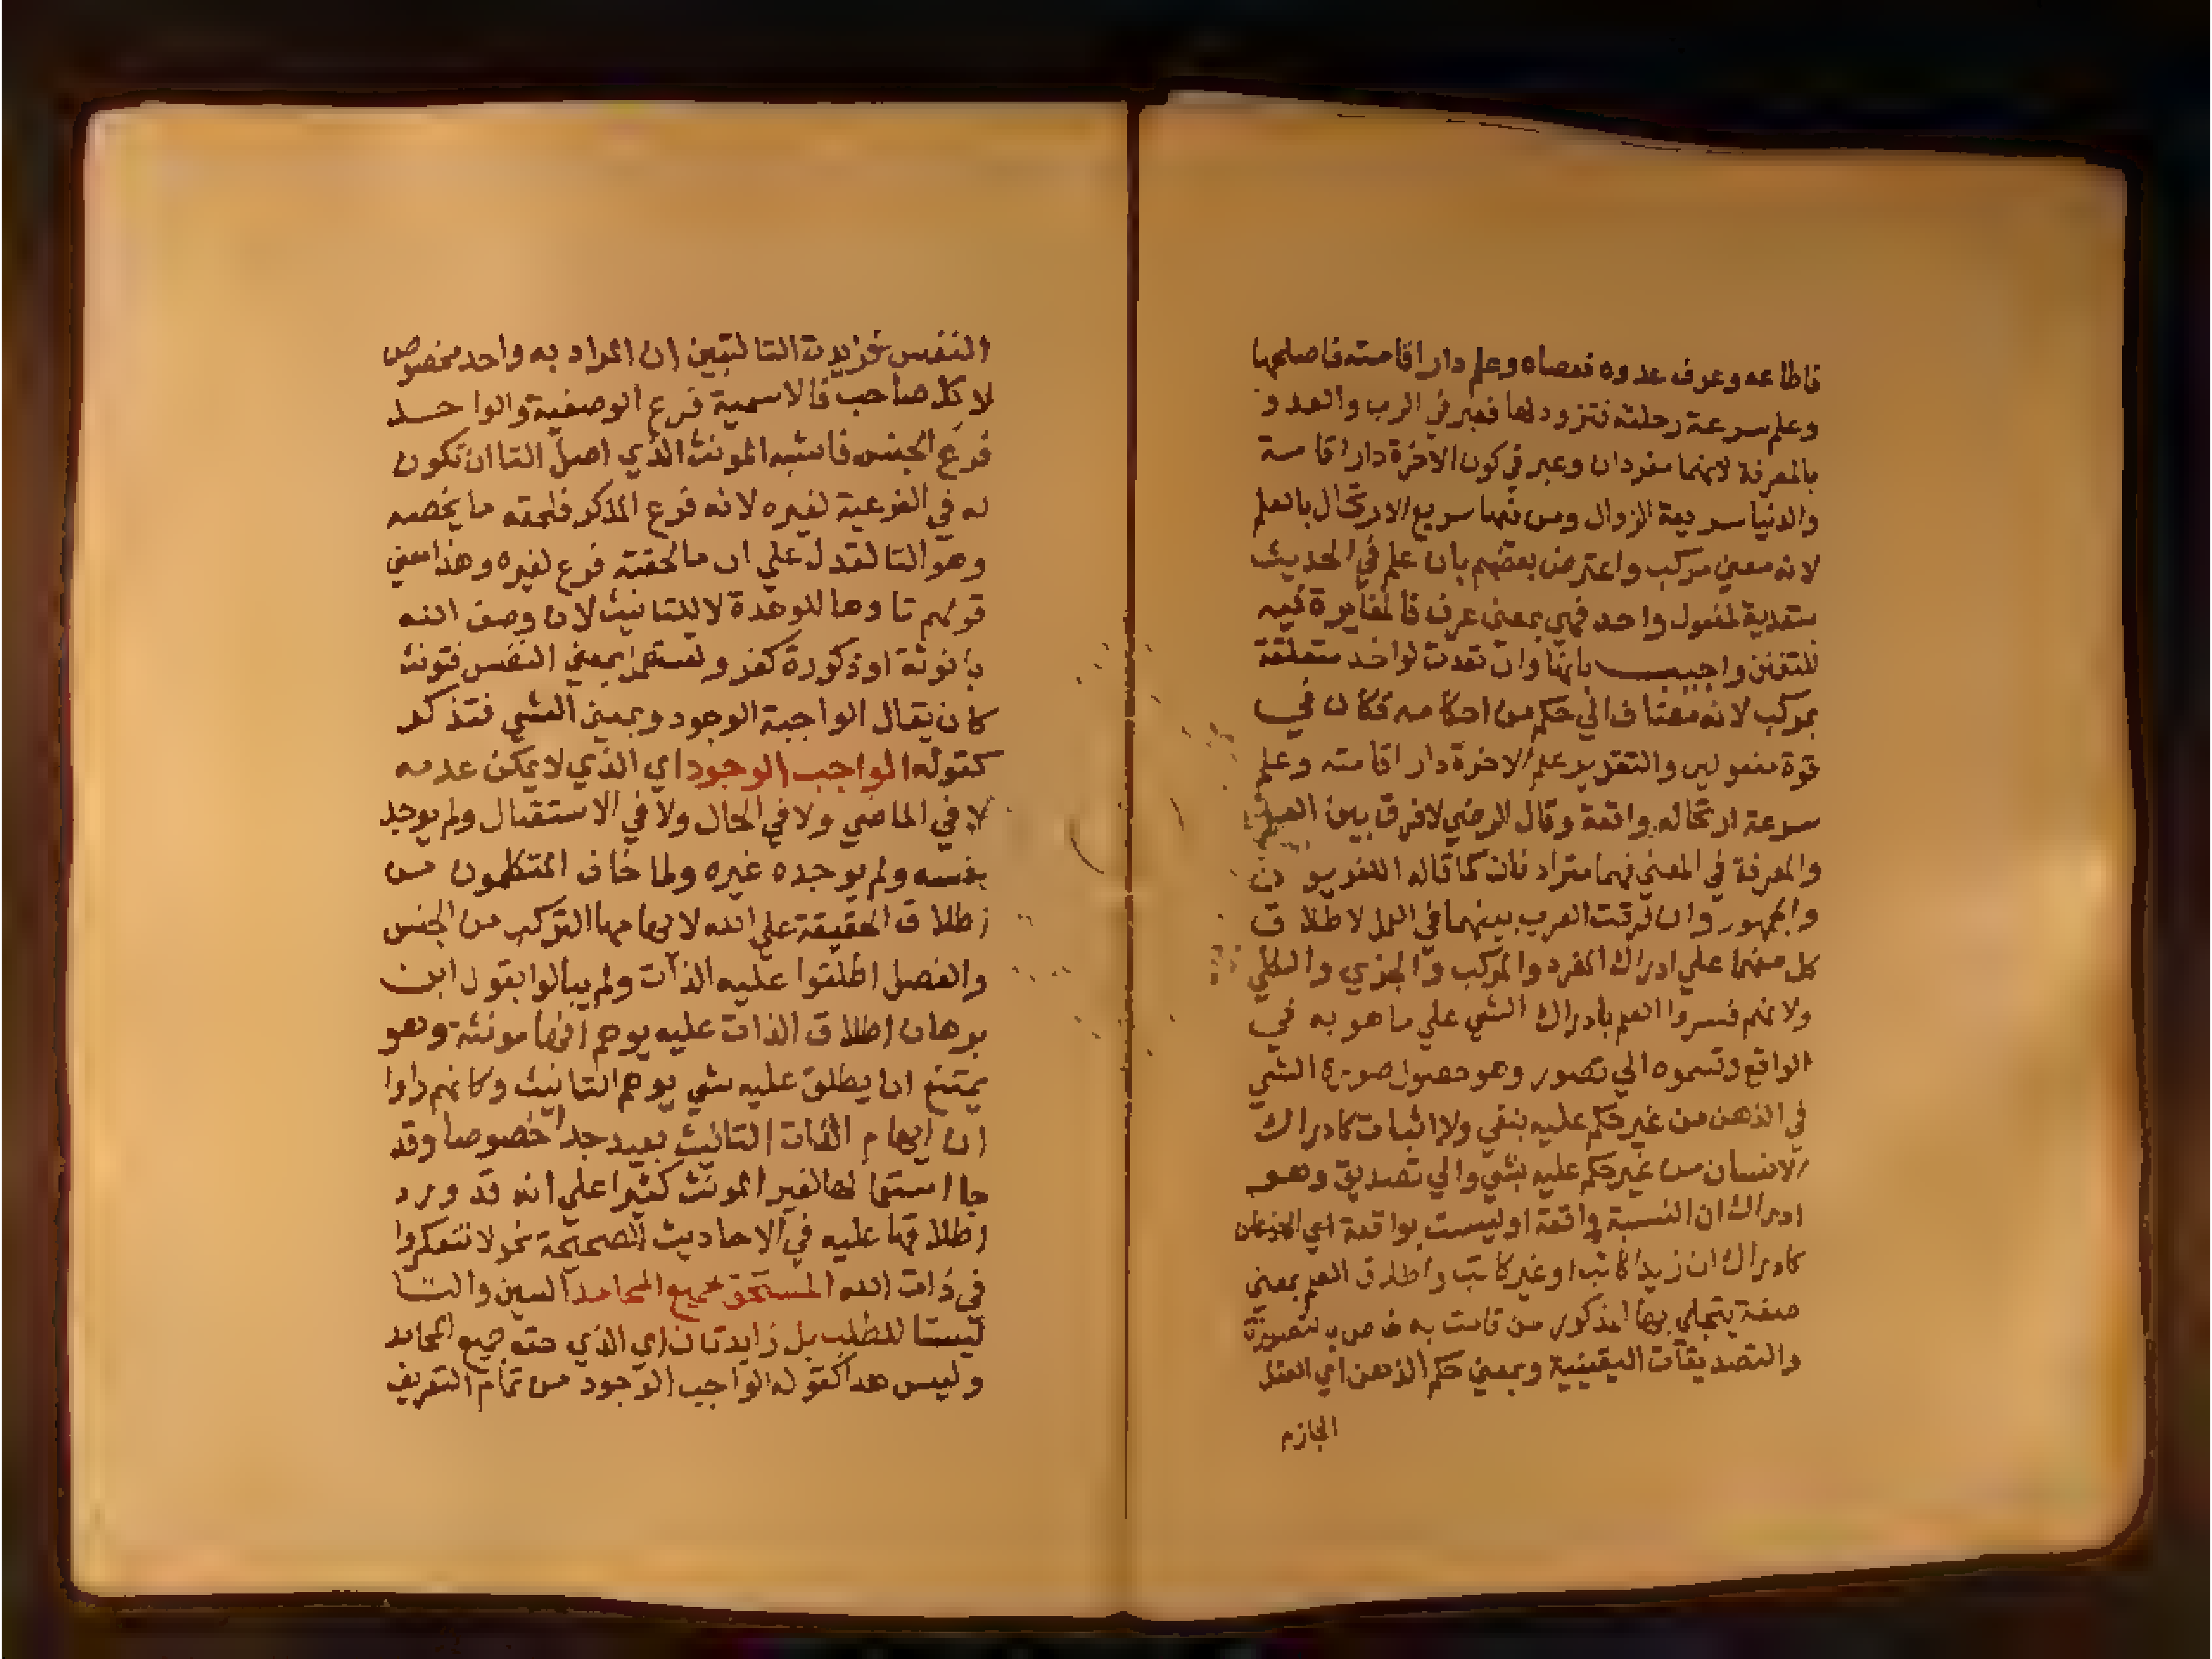 فاطاعه وعرف عدوه فعصاه وعلم دار اقامته فاصلحها
وعلم سرعة رحلته فتزود لها فعبر في الرب والعدو
بالمعرفة لانهما مفردان وعبر في كون الاخرة دار اقامة
والدنيا سريعة الزوال ومن فيها سريع الارتحال بالعلم
لانه معني مركب واعترض بعضهم بان علم في الحديث
متعدية لمفعول واحد فهي بمعني عرف فالمغايرة فيه
للتفنن واجيب بانها وان تعدت لواحد متعلقة
بمركب لانه مضاف الي حكم من احكامه فكان في
قوة مفعولين والتقدير علم الاخرة دار اقامته وعلم
سرعة ارتحاله واقعة وقال الرضي لا فرق بين العلم
والمعرفة في المعني فهما مترادفان كما قاله اللغويون
والجمهور وان فرقت العرب بينهما في العمل لاطلاق
كل منهما علي ادراك المفرد والمركب والجزي والكلي
ولانهم فسروا العلم بادراك الشي علي ما هو به في
الواقع وقسموه الي تصور وهو حصول صورة الشي
في الذهن من غير حكم عليه بنفي ولا اثبات كادراك
الانسان من غير حكم عليه بشي والي تصديق وهو
ادراك ان النسبة واقعة او ليست بواقعة اي
كادراك ان زيدا كاتب او غير كاتب واطلاق العلم بمعني
صفة يتجلي بها المذكور من قامت به خاص بالتصورة
والتصديقات اليقينية وبمعني حكم الذهن اي العقل
الجازم
النفس فزيدت التا لتبين ان المراد به واحد مخصوص
لا كل صاحب فالاسمية فرع الوصفية والواحد
فرع الجنس فاشبه المونث الذي اصل التا ان تكون
له في الفرعية لغيره لانه فرع المذكر فلحقه ما يخصه
وهو التا لتدل علي ان ما لحقته فرع لغيره وهذا معني
قولهم تاوها للوحدة لا للتانيث لان وصف الله
بانوثة او ذكورة كفر وتستعمل بمعني النفس فتونث
كان يقال الواجبة الوجود وبمعني الشي فتذكر
كقوله الواجب الوجود اي الذي لا يمكن عدمه
لا في الماضي ولا في الحال ولا في الاستقبال ولم يوجد
بنفسه ولم يوجده غيره ولما خاف المتكلمون من
اطلاق الحقيقة علي الله لايهامها التركب من الجنس
والفصل اطلقوا عليه الذات ولم يبالوا بقول ابن
برهان اطلاق الذات عليه يوهم انها مونثة وهو
يمتنع ان يطلق عليه شي يوهم التانيث وكانهم راوا
ان ايهام الذات التانيث بعيد جدا خصوصا وقد
جا استعمالها لغير المونث كثيرا علي انه قد ورد
اطلاقها عليه في الاحاديث الصحيحة نحو لا تتفكروا
في ذات الله المستحق لجميع المحامد السين والتا
ليستا للطلب بل زايدتان اي الذي حقه جميع المحامد
وليس هذا كقوله الواجب الوجود من تمام التعريف